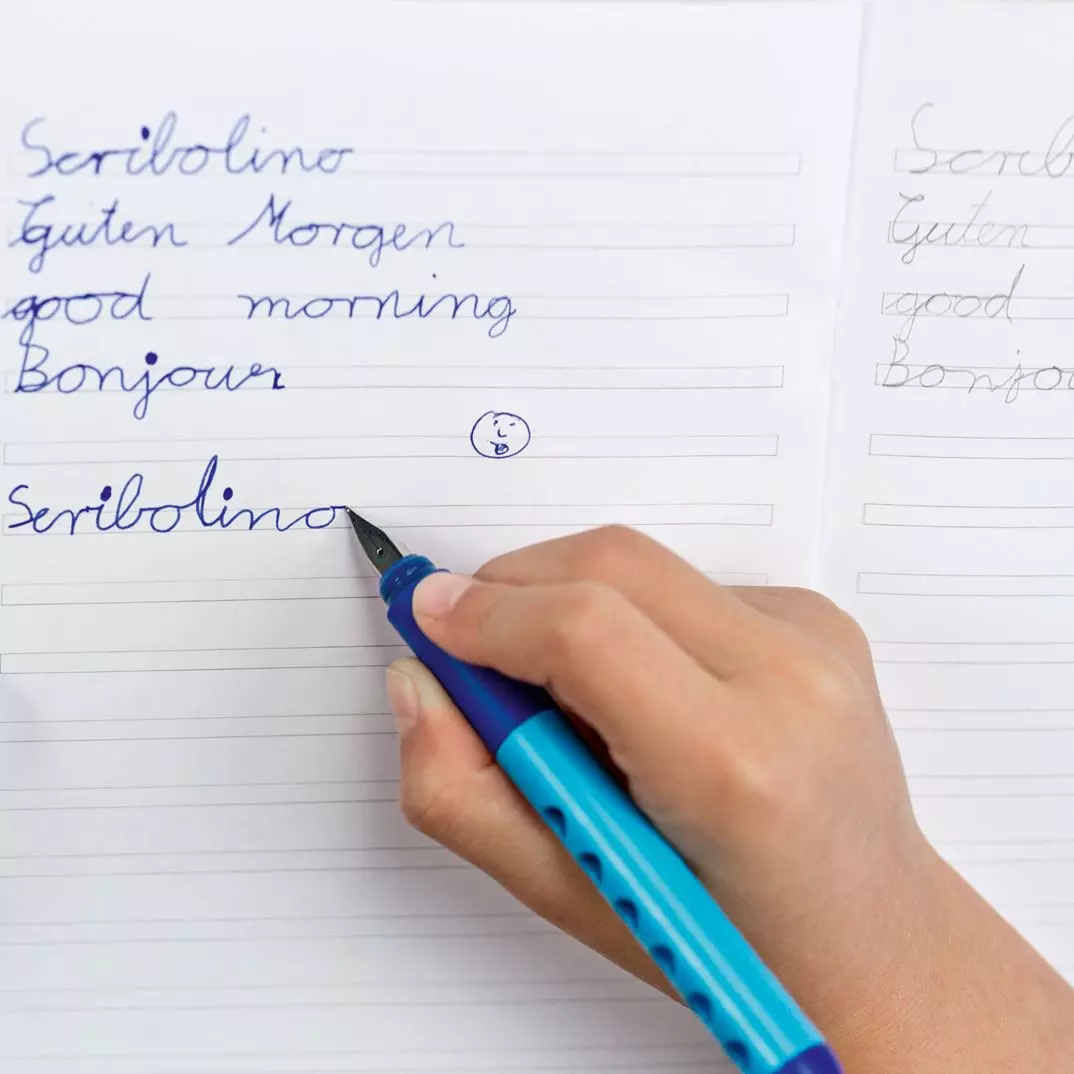 Scribolino
Guten Morgen
good morning
Bonjour
Scribolino
Scrib
Guten
good
Bonjou